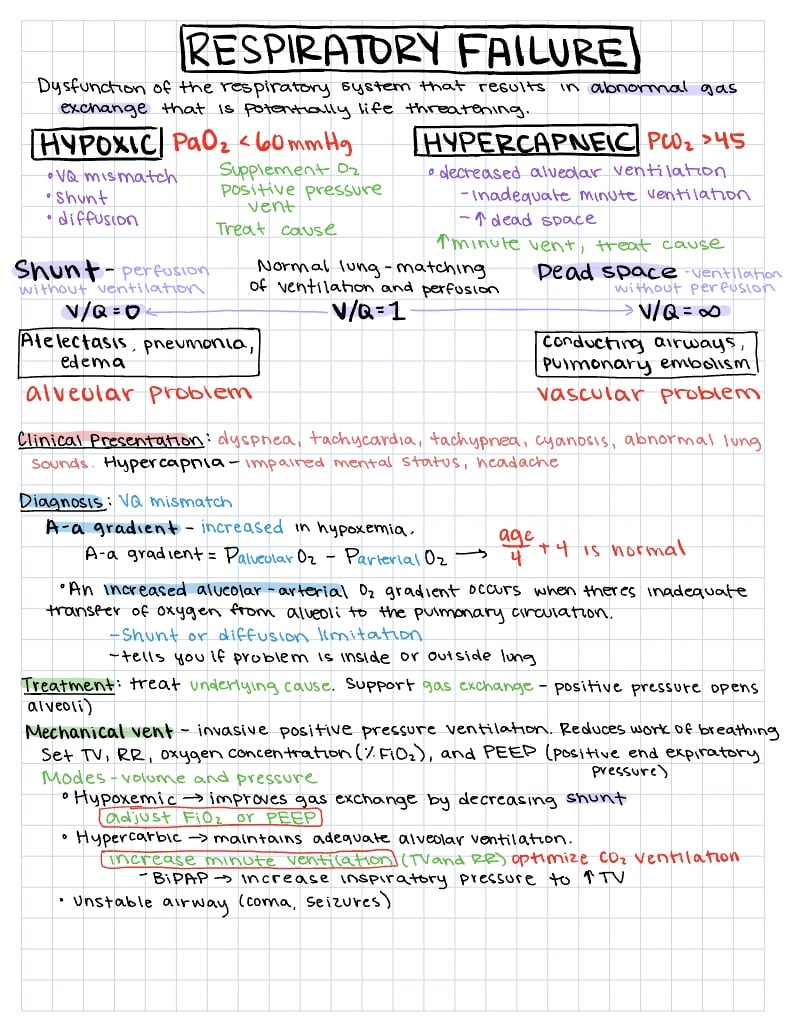 RESPIRATORY FAILURE
Dysfunction of the respiratory system that results in abnormal gas
exchange that is potentially life threatening.
HYPOXIC PaO₂ < 60 mmHg
• VQ mismatch
• Shunt
• diffusion
Supplement O₂
positive pressure
vent
Treat cause
HYPERCAPNEIC PCO₂ >45
• decreased alveolar ventilation
- inadequate minute ventilation
- ↑ dead space
↑ minute vent, treat cause
Shunt - perfusion
without ventilation
V/Q = 0
Normal lung - matching
of ventilation and perfusion
V/Q = 1
Dead space - ventilation
without perfusion
V/Q = ∞
Atelectasis, pneumonia,
edema
alveolar problem
conducting airways,
pulmonary embolism
vascular problem
Clinical Presentation: dyspnea, tachycardia, tachypnea, cyanosis, abnormal lung
sounds. Hypercapnia - impaired mental status, headache
Diagnosis: VQ mismatch
A-a gradient - increased in hypoxemia.
A-a gradient = Palveolar O₂ - Parterial O₂ → age/4 + 4 is normal
• An increased alveolar-arterial O₂ gradient occurs when theres inadequate
transfer of oxygen from alveoli to the pulmonary circulation.
- Shunt or diffusion limitation
- tells you if problem is inside or outside lung
Treatment: treat underlying cause. Support gas exchange - positive pressure opens
alveoli)
Mechanical vent - invasive positive pressure ventilation. Reduces work of breathing
Set TV, RR, oxygen concentration (% FiO₂), and PEEP (positive end expiratory
pressure)
Modes - volume and pressure
• Hypoxemic → improves gas exchange by decreasing shunt
adjust FiO₂ or PEEP
• Hypercarbic → maintains adequate alveolar ventilation.
increase minute ventilation (TV and RR) optimize CO₂ ventilation
- BiPAP → increase inspiratory pressure to ↑ TV
• Unstable airway (coma, seizures)